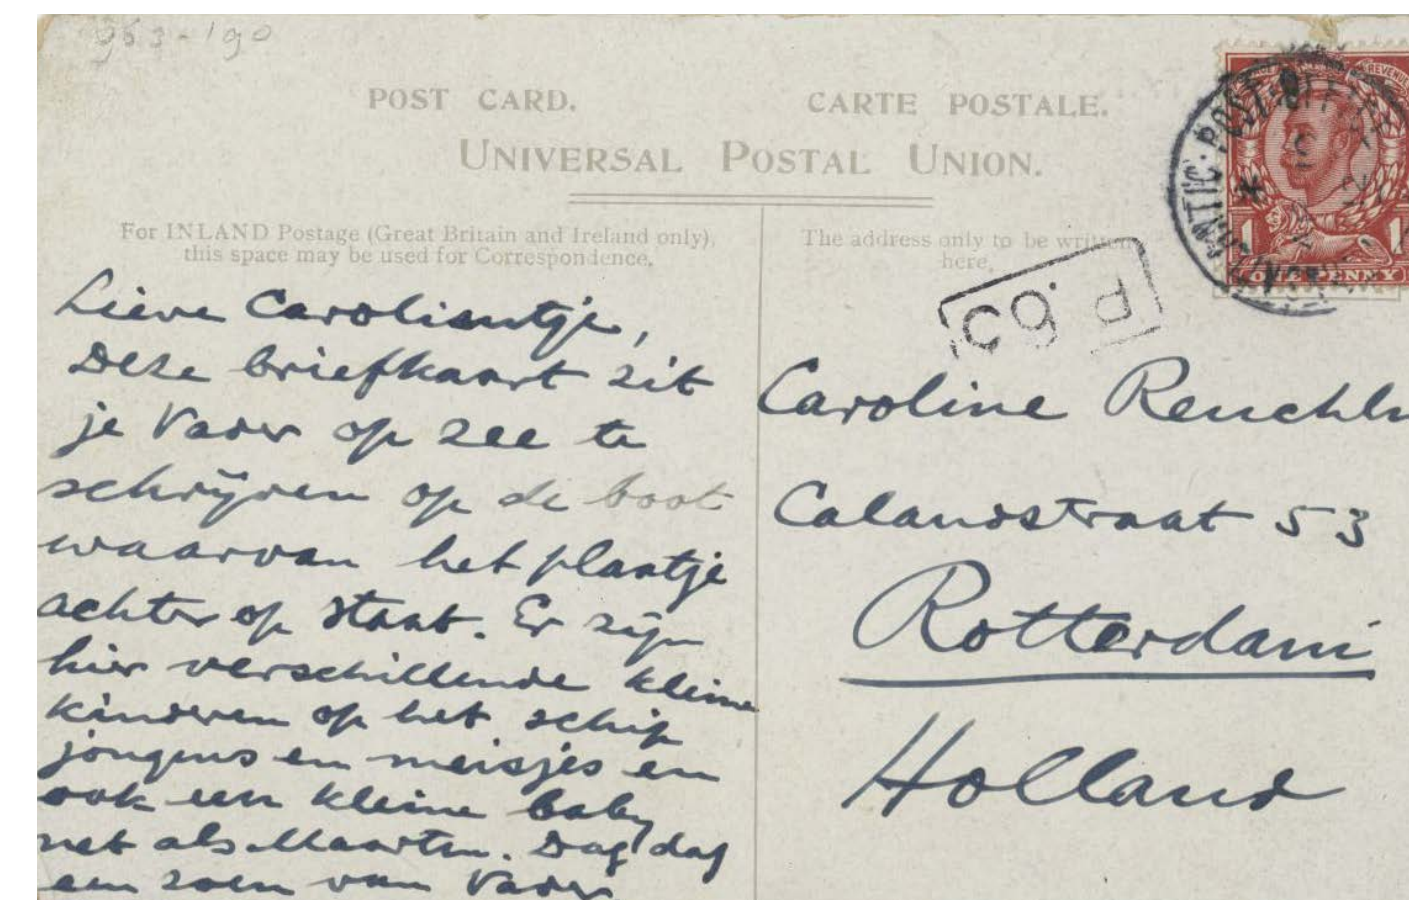 963-190
POST CARD.
CARTE POSTALE.
UNIVERSAL POSTAL UNION.
For INLAND Postage (Great Britain and Ireland only),
this space may be used for Correspondence.
The address only to be written
here.
ONE PENNY
Lieve Carolientje,
Deze briefkaart zit
je Vader op zee te
schrijven op de boot
waarvan het plaatje
achter op staat. Er zijn
hier verschillende kleine
kinderen op het schip
jongens en meisjes en
ook een kleine baby
net als Maarten. Dag dag
een zoen van Vader
Caroline Reuchlin
Calandstraat 53
Rotterdam
Holland